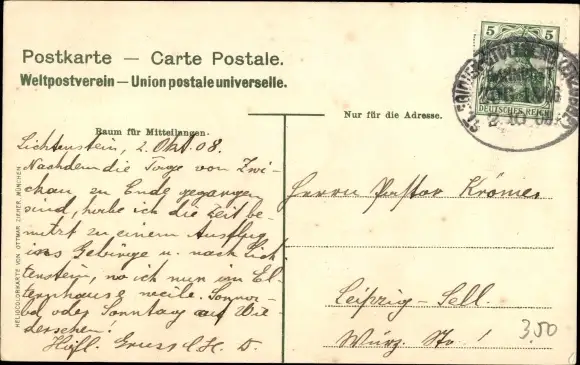 Postkarte — Carte Postale.
Weltpostverein — Union postale universelle.
5 5
DEUTSCHES REICH
Nur für die Adresse.
Raum für Mitteilungen.
Lichtenstein, 2. Okt. 08.
Nachdem die Tage von Zwi-
ckau zu Ende gegangen
sind, habe ich die Zeit be-
nutzt zu einem Ausflug
ins Gebirge u. nach Lich
tenstein, wo ich nun im El-
ternhause weile. Sonna-
bd oder Sonntag auf Wie-
dersehen!
Höfl. Gruss
Herrn Pastor Krömer
Leipzig-Sell.
Würz. Str. 1
3,50
HELIOCOLORKARTE VON OTTMAR ZIEHER, MÜNCHEN